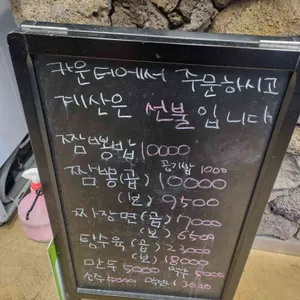 카운터에서 주문하시고
계산은 선불입니다
짬뽕밥 10000
공기밥 1000
짬뽕(곱) 10000
(보) 9500
짜장면(곱) 7000
(보) 6500
탕수육(곱) 23000
(보) 18000
만두 5000 맥주 5000
소주 5000 음료수 3000